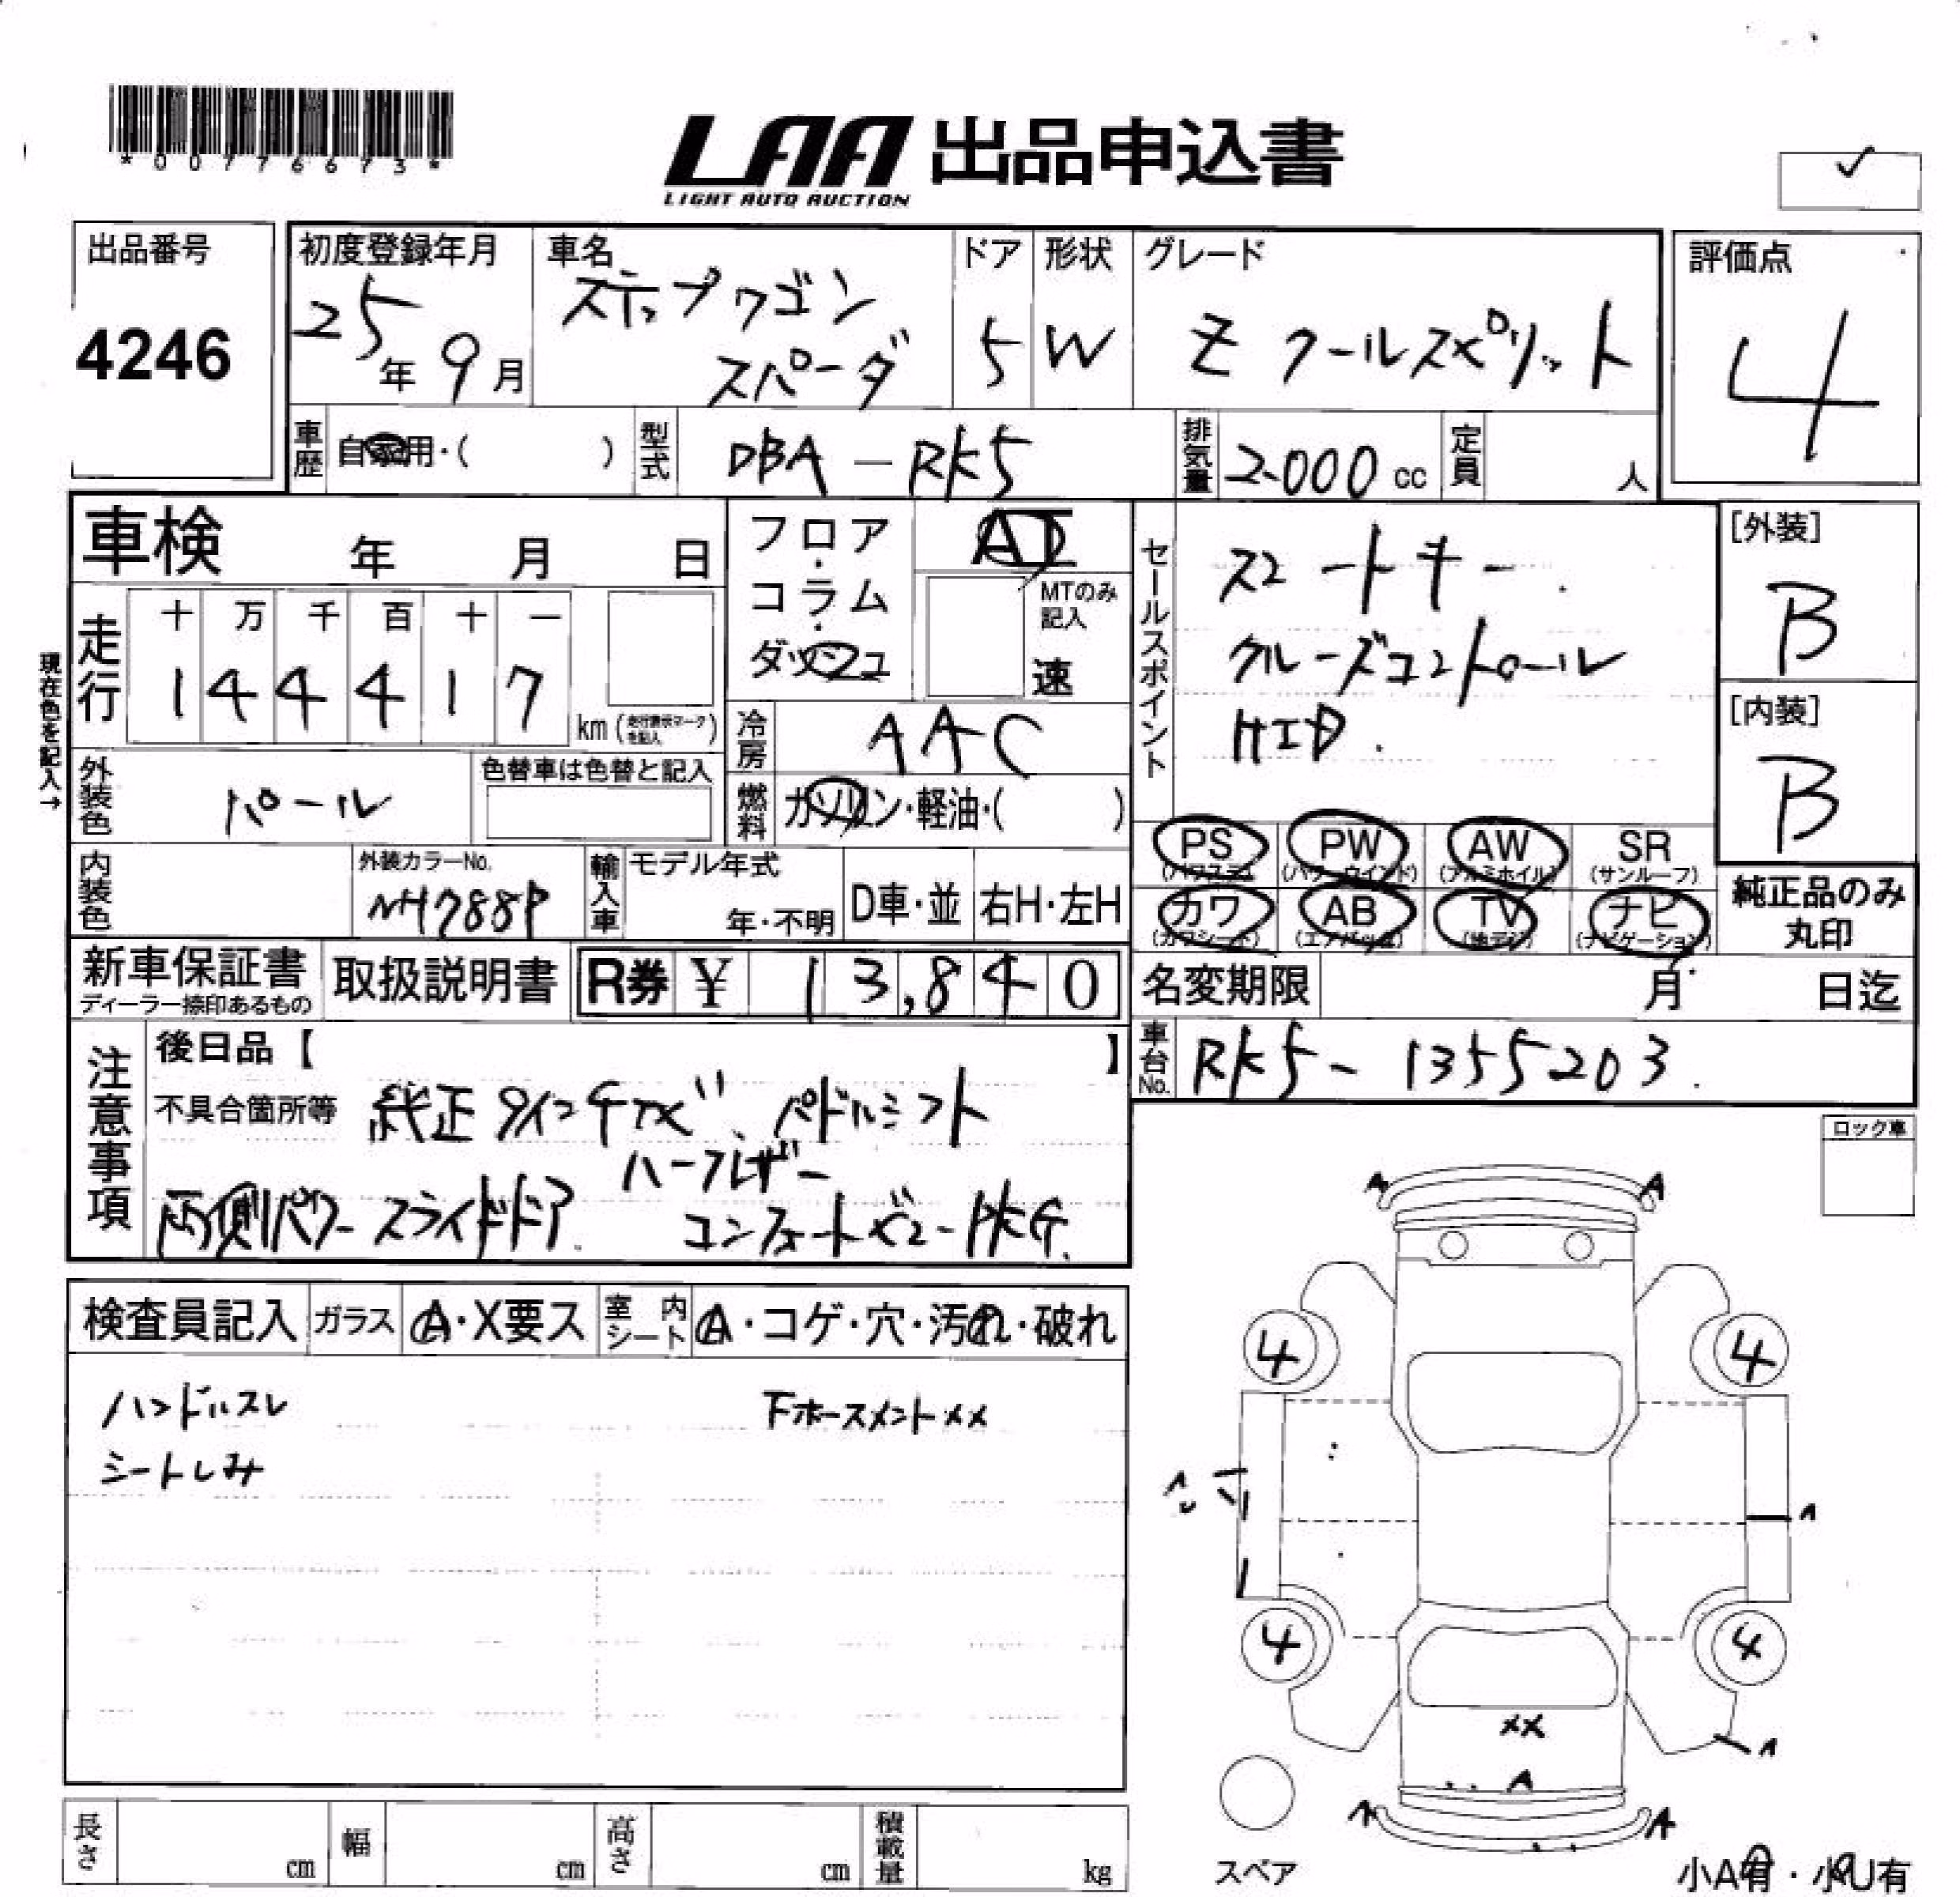 *00776673*
LAA 出品申込書
LIGHT AUTO AUCTION
✓
出品番号
4246
初度登録年月
25年9月
車名
ステップワゴン
スパーダ
ドア
5
形状
W
グレード
Z クールスピリット
評価点
4
車歴
自家用・( )
型式
DBA-RK5
排気量
2000cc
定員
人
車検 年 月 日
フロア・コラム・ダッシュ
AT
MTのみ記入
速
セールスポイント
スマートキー.
クルーズコントロール
HID.
[外装]
B
[内装]
B
現在色を記入→
走行
十 万 千 百 十 一
1 4 4 4 1 7
km (走行表示マークを記入)
冷房
AAC
外装色
パール
色替車は色替と記入
燃料
ガソリン・軽油・( )
PS (パワステ) PW (パワーウインド) AW (アルミホイル) SR (サンルーフ)
カワ (カワシート) AB (エアバック) TV (地デジ) ナビ (ナビゲーション)
純正品のみ
丸印
内装色
外装カラーNo.
NH788P
輸入車
モデル年式
年・不明
D車・並
右H・左H
新車保証書
ディーラー捺印あるもの
取扱説明書
R券 ¥ 13,840
名変期限 月 日迄
車台No.
RK5-1355203.
注意事項
後日品【 】
不具合箇所等 純正9インチナビ、パドルシフト
ハーフレザー
両側パワースライドドア. コンフォートビューPKG.
ロック車
検査員記入
ガラス
A・X要ス
室内シート
A・コゲ・穴・汚れ・破れ
ハンドルスレ
下ホースメントXX
シートしみ
A A
4 4
A
4 4
XX
A
A
A A
スペア
小A有・小U有
長さ cm
幅 cm
高さ cm
積載量 kg